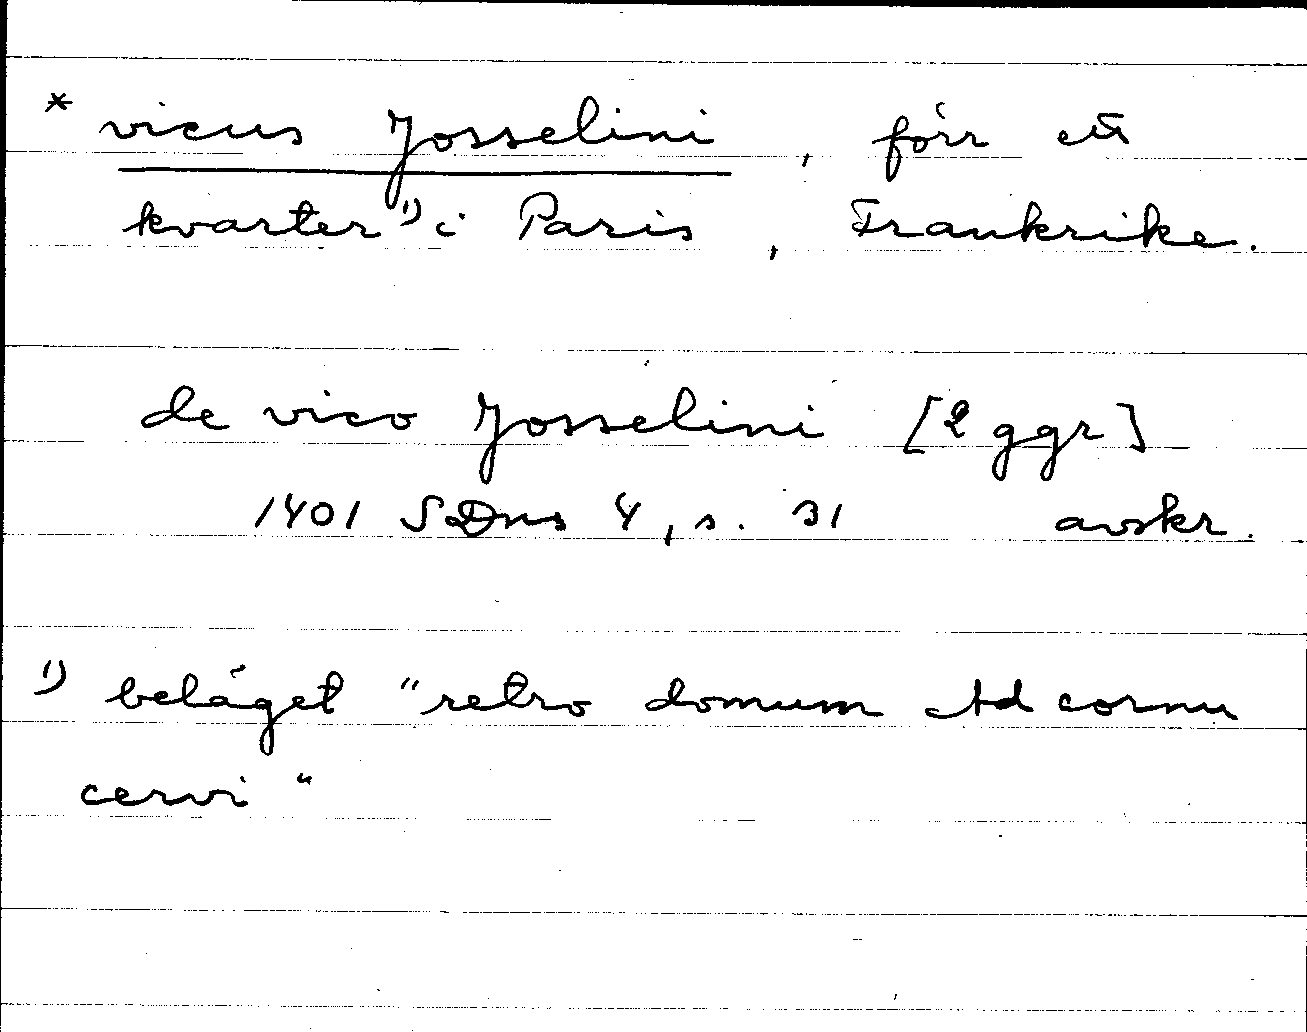 * vicus Josselini, förr ett
kvarter 1) i Paris, Frankrike.
de vico Josselini [2 ggr]
1401 SDns 4, s. 31 avskr.
1) beläget "retro domum Ad cornu
cervi"